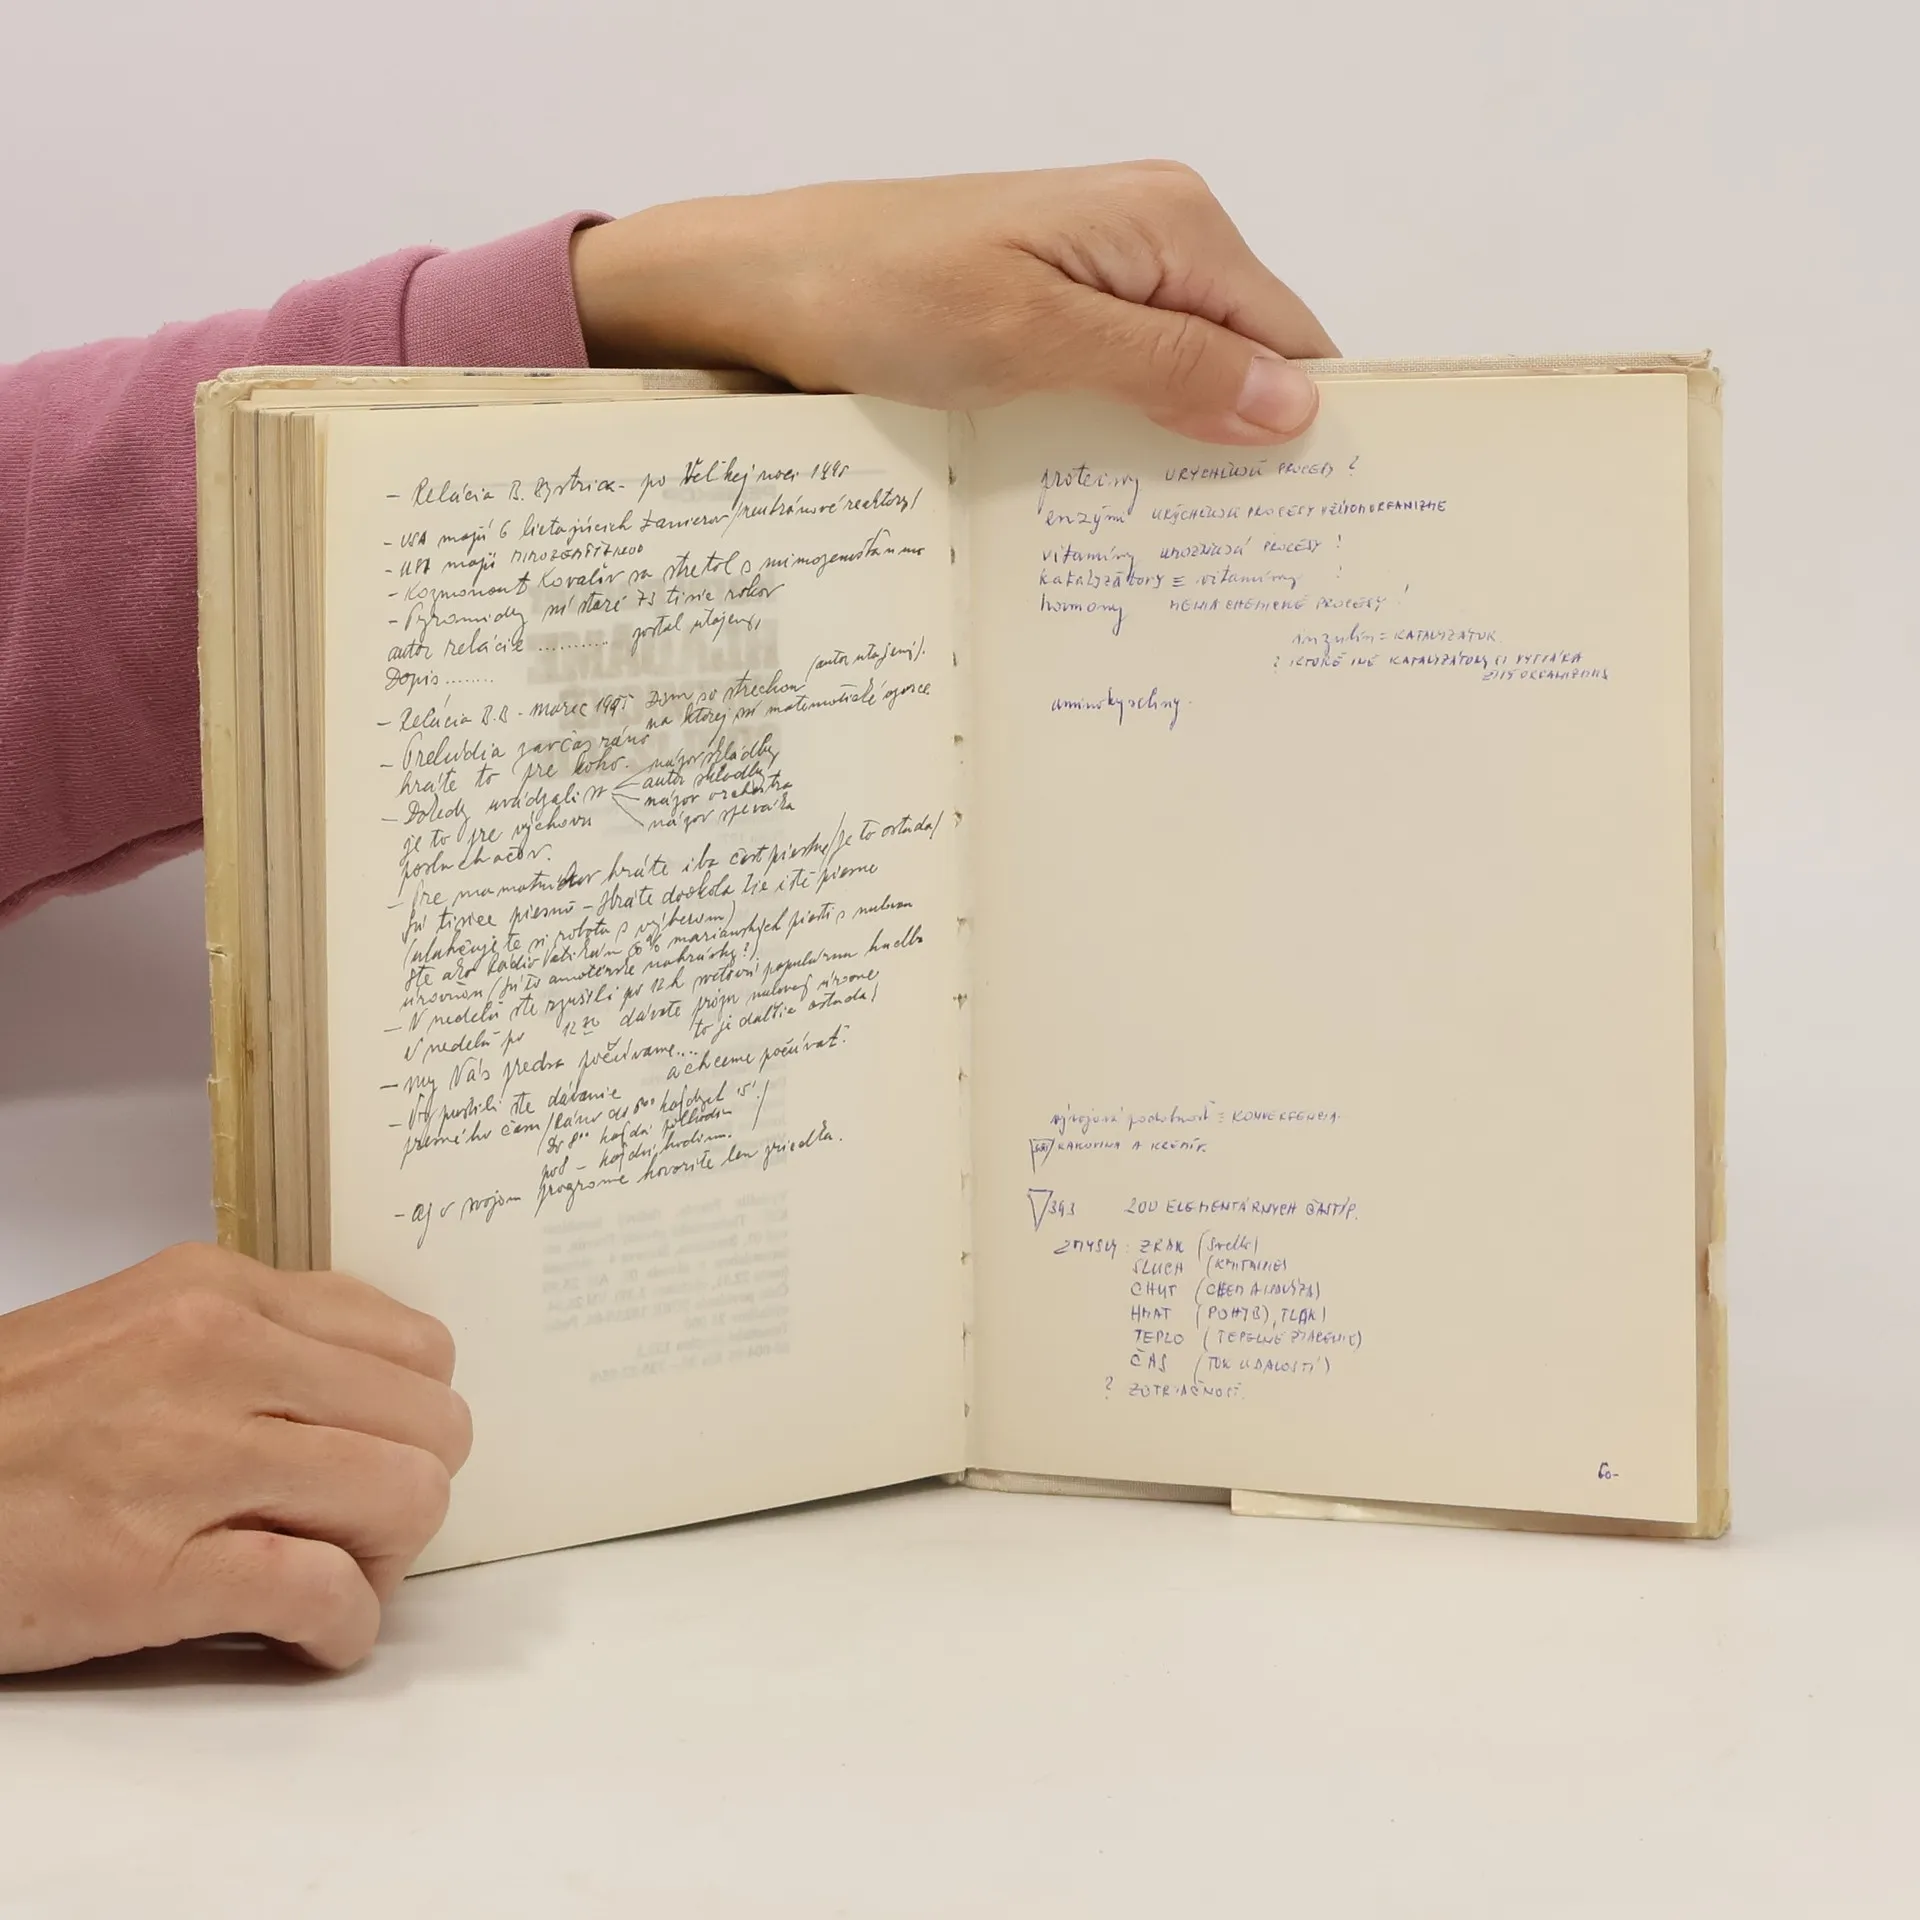 - Relácia B. Bystrica - po Veľkej noci 1995
- USA majú 6 lietajúcich tanierov /neutrónové reaktory/
- USA majú MIMOZEMŠŤANOV
- Kozmonaut Kovaľov sa stretol s mimozemšťanmi
- Pyramidy sú staré 73 tisíc rokov
autor relácie .......... zostal utajený
Dopis ........
- Relácia B.B - marec 1995 Dom so strechou (autor utajený).
na ktorej sú matematické
- Prelúdia zavčas ráno
hráte to pre koho.
- Dokedy uvádzali sa
názov skladby
autor skladby
názov orchestra
názov speváka
je to pre výchovu
poslucháčov.
- Pre hráte iba časť piesne /je to ostuda/
Sú tisíce piesní - hráte dookola tie isté piesne
(uľahčujete si robotu s výberom)
Ste ako Rádio Vatikán mariánskych piesní s nulovou
úrovňou (sú to amatérske nahrávky?)
- V nedeľu ste spustili po 12 h svetovú populárnu hudbu
V nedeľu po 12 30 dávate nulovej úrovne
to je ďalšia ostuda!
- My Vás predsa počúvame.... a chceme počúvať.
- Vy pustili ste dávanie
presného času /Ráno do 8°° každých 15'./
Do 8°° každú polhodinu
po 8 - každú hodinu.
- Aj v svojom programe hovoríte len zriedka.
proteiny URÝCHĽUJÚ PROCESY ?
enzými URÝCHĽUJÚ PROCESY V ŽIVOM ORGANIZME
vitamíny UMOŽŇUJÚ PROCESY !
katalyzátory ≡ vitamíny !
hormony MENIA CHEMICKÉ PROCESY !
inzulín = KATALYZÁTOR
? KTORÉ INÉ KATALYZÁTORY SI VYTVÁRA
ŽIVÝ ORGANIZMUS
aminokyseliny.
vývojová podobnosť = KONVERGENCIA.
RAKOVINA A KREMÍK.
393 200 ELEMENTÁRNYCH ČASTÍC.
ZMYSLY: ZRAK (Svetlo)
SLUCH (KMITANIE)
CHUŤ (CHEM ANALÝZA)
HMAT (POHYB), TLAK)
TEPLO (TEPELNÉ ŽIARENIE)
ČAS (TOK UDALOSTÍ)
? ZOTRVAČNOSŤ.
60-